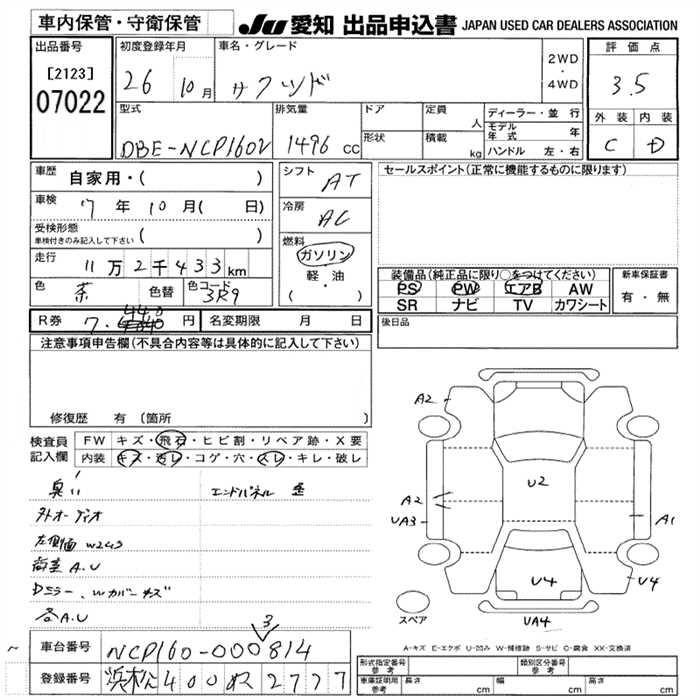 車内保管・守衛保管
JU 愛知 出品申込書 JAPAN USED CAR DEALERS ASSOCIATION
出品番号
[2123]
07022
初度登録年月
26 10月
車名・グレード
サクシード
2WD
・
4WD
評価点
3.5
外装 内装
C D
型式
DBE-NCP160V
排気量
1496 cc
ドア
形状
定員
人
積載
kg
ディーラー・並行
モデル年式 年
ハンドル 左・右
車歴 自家用・( )
車検 7年 10月( 日)
受検形態
車検付きのみ記入して下さい ( )
走行 11万2千433km
色 茶 色替 色コード 3R9
シフト
AT
冷房
AC
燃料
ガソリン
軽・油
( )
セールスポイント(正常に機能するものに限ります)
装備品(純正品に限り○をつけてください)
PS PW エアB AW
SR ナビ TV カワシート
新車保証書
有・無
R券 7.440円 名変期限 月 日
後日品
注意事項申告欄(不具合内容等は具体的に記入して下さい)
修復歴 有(箇所 )
検査員記入欄
FW キズ・飛石・ヒビ割・リペア跡・X要
内装 キズ・汚レ・コゲ・穴・スレ・キレ・破レ
エンドパネル
外オーディオ
左側面 W2 U3
A.U
Dミラー、Wカバー キズ
各A.U
A2
A2
UA3
U2
A1
U4
U4
UA4
スペア
A-キズ E-エクボ U-凹み W-補修跡 S-サビ C-腐食 XX-交換済
車台番号 NCP160-000814
3
登録番号 浜松 400 ぬ 2777
形式指定番号 参考
類別区分番号 参考
車庫証明用 参考
長さ cm
幅 cm
高さ cm